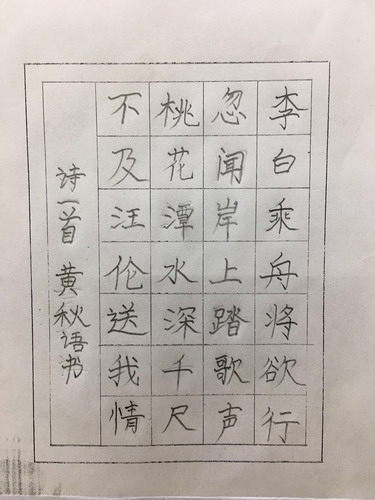 李白乘舟将欲行
忽闻岸上踏歌声
桃花潭水深千尺
不及汪伦送我情
诗一首 黄秋语书